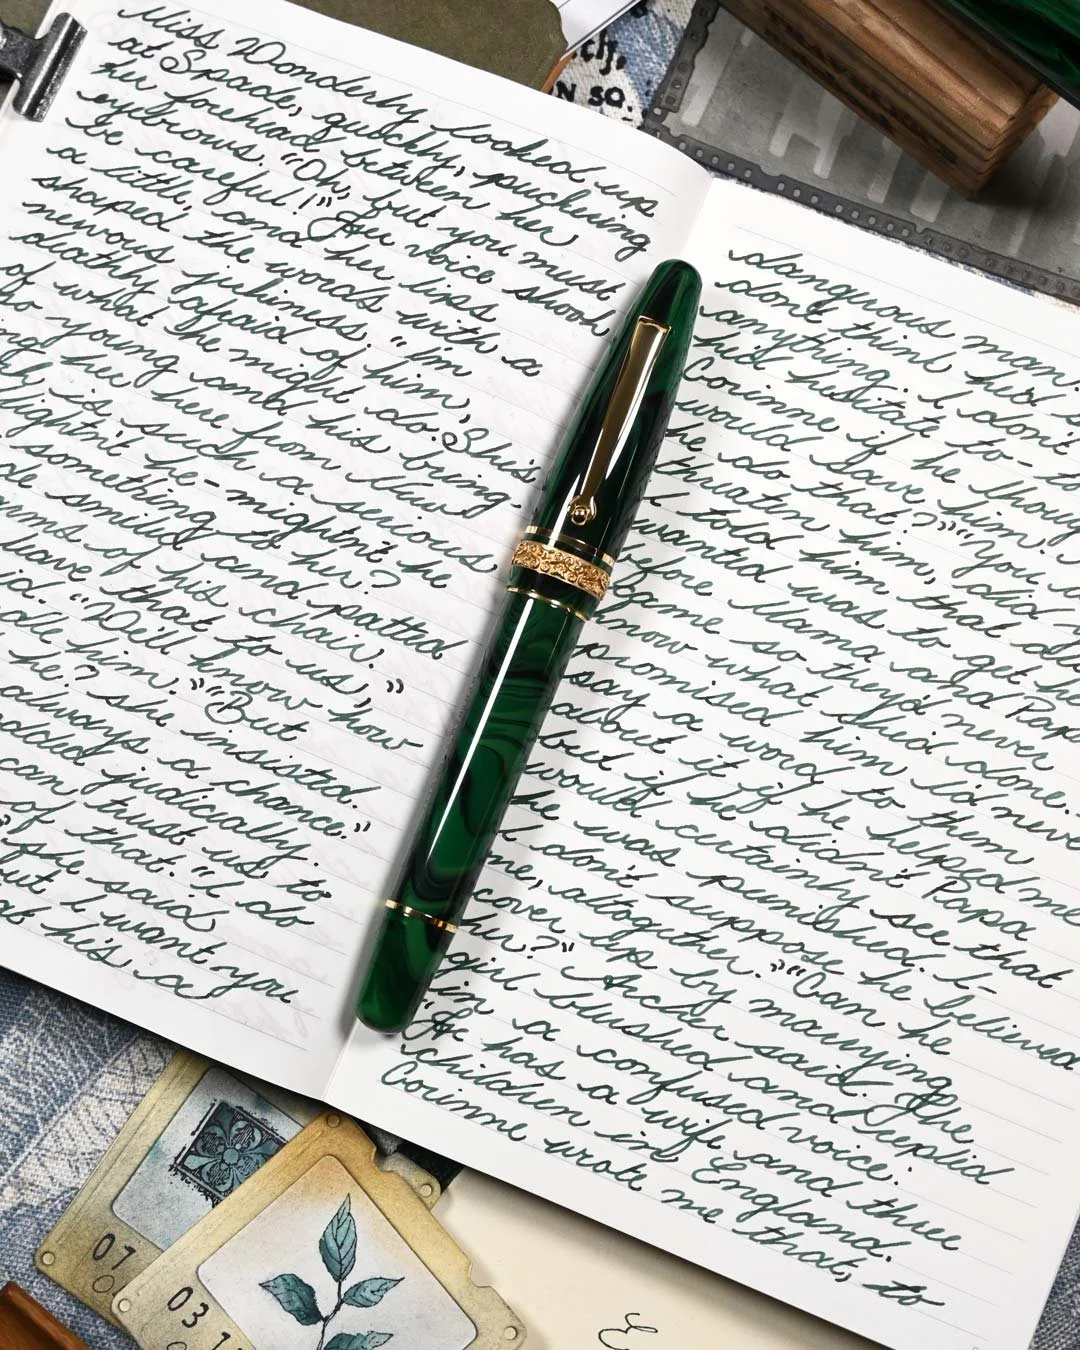 Miss Wonderly looked up
at Spade, quickly, puckering
her forehead between her
eyebrows. "Oh, but you must
be careful!" Her voice shook
a little, and her lips
shaped the words with a
nervous jerkiness. "I'm
deathly afraid of him,
of what he might do. She's
so young and his bring-
her here from New
is such a serious
Mightn't he - mightn't he
something to her?
smiled and patted
arms of his chair.
leave that to us,"
"We'll know how
him." "But
he? she insisted.
always a chance."
judicially.
can trust us to
of that." "I do
she said,
but I want you
he's a
dangerous man.
don't think he'd
anything. I don't
he'd hesitate to - to
Corinne if he
would save him.
he do that?" "You
threaten him, did
I told him that all
wanted was to get
before Mama and Papa
came so they'd never
know what she'd done.
promised him I'd never
say a word to them
about it if he helped me
but if he didn't Papa
would certainly see that
he was punished. I-
I don't suppose he believed
me, altogether." "Can he
cover up by marrying
her?" Archer said. The
girl blushed and replied
in a confused voice:
"He has a wife and three
children in England.
Corinne wrote me that, to
ch.
N SO.
07
03 1
E